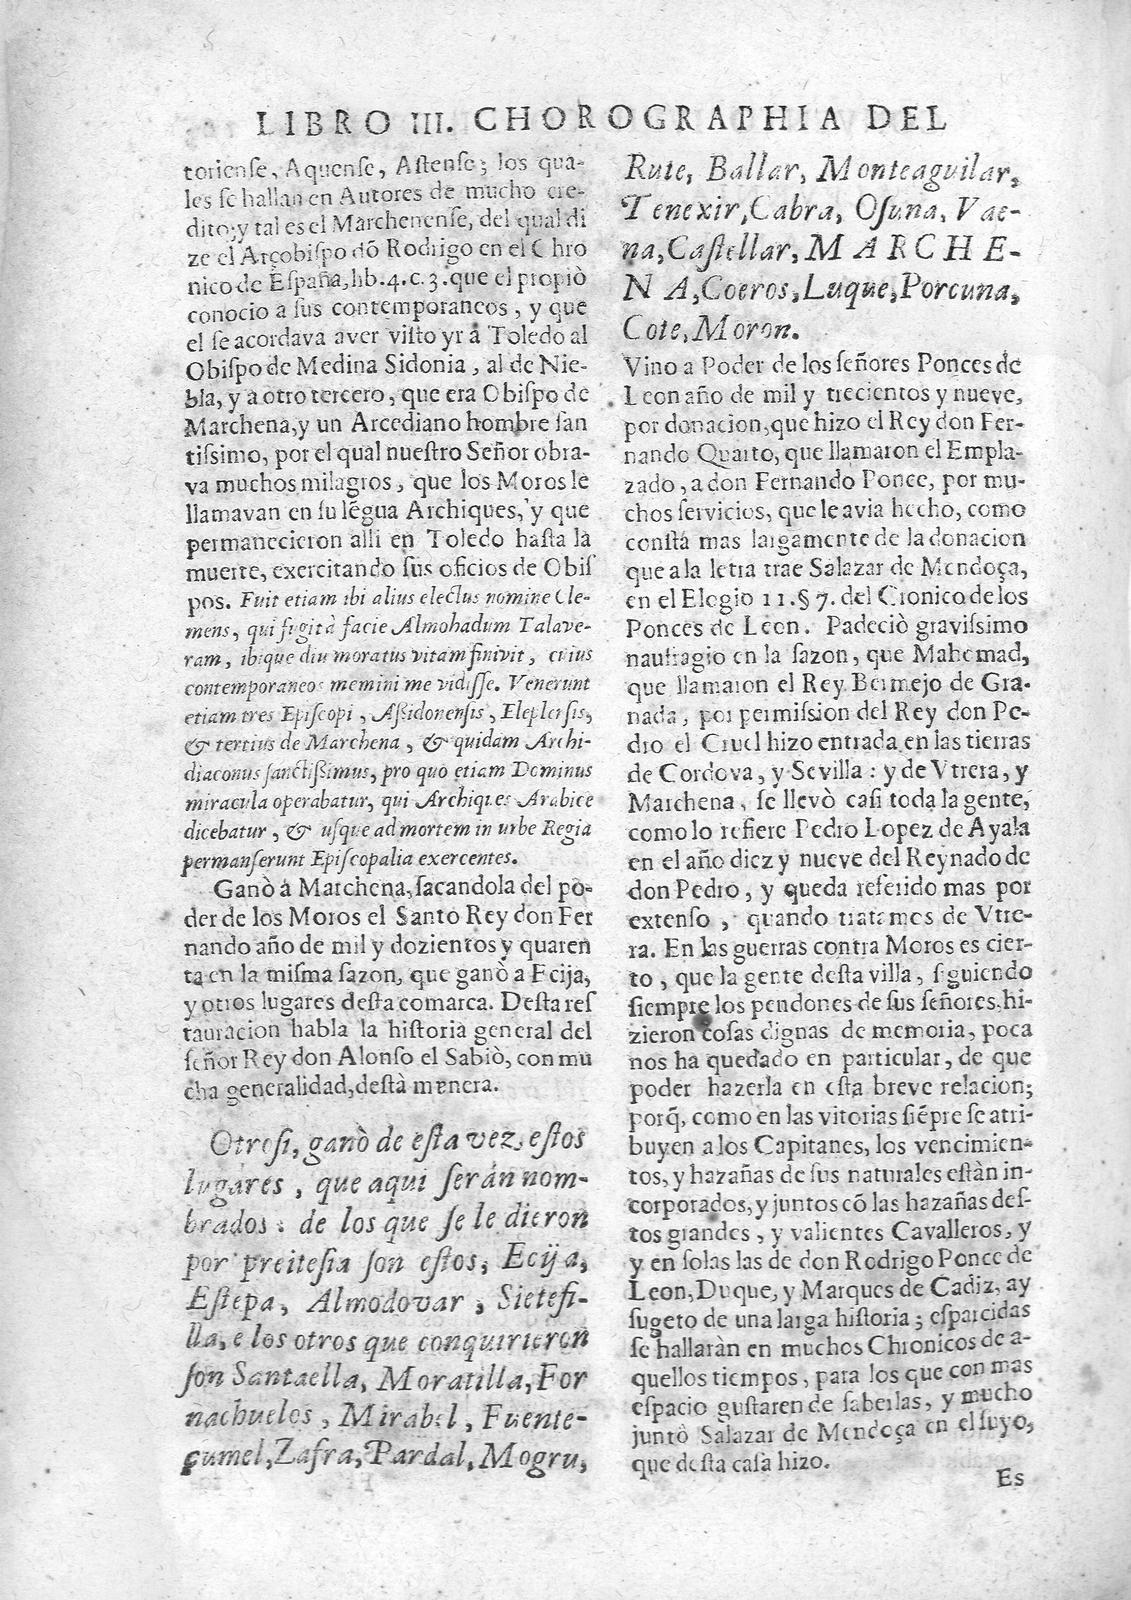 LIBRO III. CHOROGRAPHIA DEL
toriense, Aquense, Astense; los qua-
les se hallan en Autores de mucho cre-
dito; y tal es el Marchenense, del qual di
ze el Arçobispo dō Rodrigo en el Chro
nico de España, lib. 4. c. 3. que el propiò
conocio a sus contemporaneos, y que
el se acordava aver visto yr à Toledo al
Obispo de Medina Sidonia, al de Nie-
bla, y a otro tercero, que era Obispo de
Marchena, y un Arcediano hombre san
tissimo, por el qual nuestro Señor obra-
va muchos milagros, que los Moros le
llamavan en su lẽgua Archiques, y que
permanecieron alli en Toledo hasta la
muerte, exercitando sus oficios de Obis
pos. Fuit etiam ibi alius electus nomine Cle-
mens, qui fugit à facie Almohadum Talave-
ram, ibique diu moratus vitam finivit, cuius
contemporaneos memini me vidisse. Venerunt
etiam tres Episcopi, Assidonensis, Eleplensis,
& tertius de Marchena, & quidam Archi-
diaconus sanctissimus, pro quo etiam Dominus
miracula operabatur, qui Archiques Arabice
dicebatur, & usque ad mortem in urbe Regia
permanserunt Episcopalia exercentes.
Ganò à Marchena, sacandola del po-
der de los Moros el Santo Rey don Fer
nando año de mil y dozientos y quaren
ta en la misma sazon, que ganò a Ecija,
y otros lugares desta comarca. Desta res
tauracion habla la historia general del
señor Rey don Alonso el Sabiò, con mu
cha generalidad, destà menera.
Otrosi, ganò de esta vez estos
lugares, que aqui serán nom-
brados: de los que se le dieron
por preitesia son estos; Ecija,
Estepa, Almodovar, Sietefi-
lla, e los otros que conquirieron
son Santaella, Moratilla, For
nachuelos, Mirabel, Fuente-
çumel, Zafra, Pardal, Mogru,
Rute, Ballar, Monteaguilar,
Tenexir, Cabra, Osuna, Vae-
na, Castellar, MARCHE-
NA, Coeros, Luque, Porcuna,
Cote, Moron.
Vino a Poder de los señores Ponces de
Leon año de mil y trecientos y nueve,
por donacion, que hizo el Rey don Fer-
nando Quarto, que llamaron el Empla-
zado, a don Fernando Ponce, por mu-
chos servicios, que le avia hecho, como
constà mas largamente de la donacion
que a la letra trae Salazar de Mendoça,
en el Elogio 11. § 7. del Cronico de los
Ponces de Leon. Padeciò gravissimo
naufragio en la sazon, que Mahomad,
que llamaron el Rey Bermejo de Gra-
nada, por permission del Rey don Pe-
dro el Cruel hizo entrada en las tierras
de Cordova, y Sevilla: y de Vtrera, y
Marchena, se llevò casi toda la gente,
como lo refiere Pedro Lopez de Ayala
en el año diez y nueve del Reynado de
don Pedro, y queda referido mas por
extenso, quando tratamos de Vtre-
ra. En las guerras contra Moros es cier-
to, que la gente desta villa, siguiendo
siempre los pendones de sus señores, hi-
zieron cosas dignas de memoria, poca
nos ha quedado en particular, de que
poder hazerla en esta breve relacion;
porq̃, como en las vitorias siẽpre se atri-
buyen a los Capitanes, los vencimien-
tos, y hazañas de sus naturales estàn in-
corporados, y juntos cō las hazañas des-
tos grandes, y valientes Cavalleros, y
y en solas las de don Rodrigo Ponce de
Leon, Duque, y Marques de Cadiz, ay
sugeto de una larga historia; esparcidas
se hallaràn en muchos Chronicos de a-
quellos tiempos, para los que con mas
espacio gustaren de saberlas, y mucho
juntò Salazar de Mendoça en el suyo,
que desta casa hizo.
Es